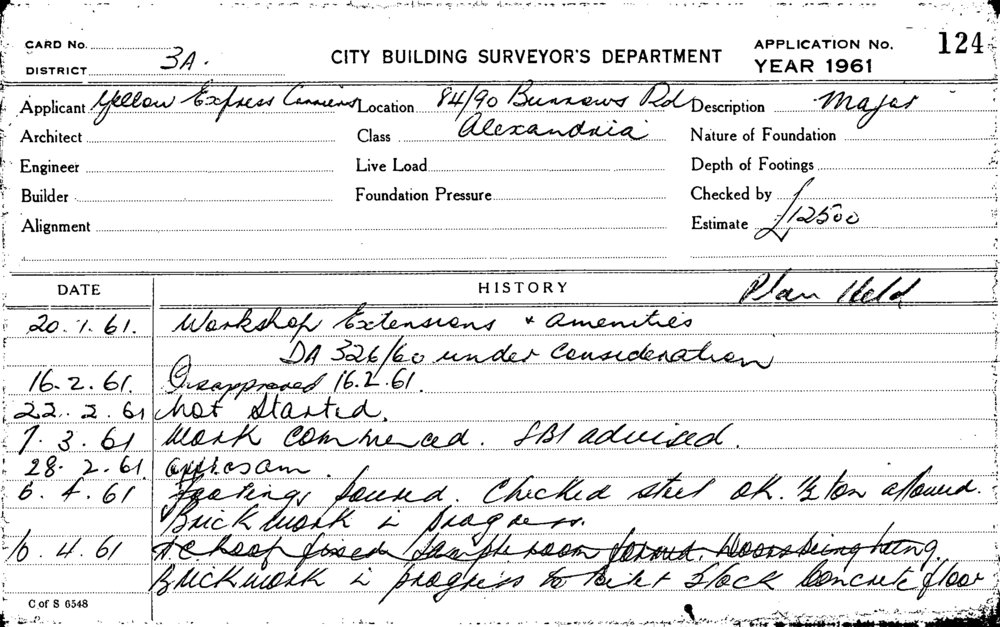 CARD No.
DISTRICT 3A.
CITY BUILDING SURVEYOR'S DEPARTMENT
APPLICATION No. 124
YEAR 1961
Applicant Yellow Express Carriers Location 84/90 Burrows Rd Description Major
Architect Class Alexandria Nature of Foundation
Engineer Live Load Depth of Footings
Builder Foundation Pressure Checked by
Alignment Estimate £12500
DATE HISTORY Plan Held
20.1.61. Workshop Extensions & amenities
DA 326/60 under consideration
16.2.61. Disapproved 16.2.61.
22.2.61 Not started.
7.3.61 Work commenced. SBI advised.
28.2.61
6.4.61 Footings poured. Checked steel OK. ½ ton allowed.
Brickwork in progress.
10.4.61 roof fixed room Doors being hung.
Brickwork in progress to Concrete floor
C of S 6548